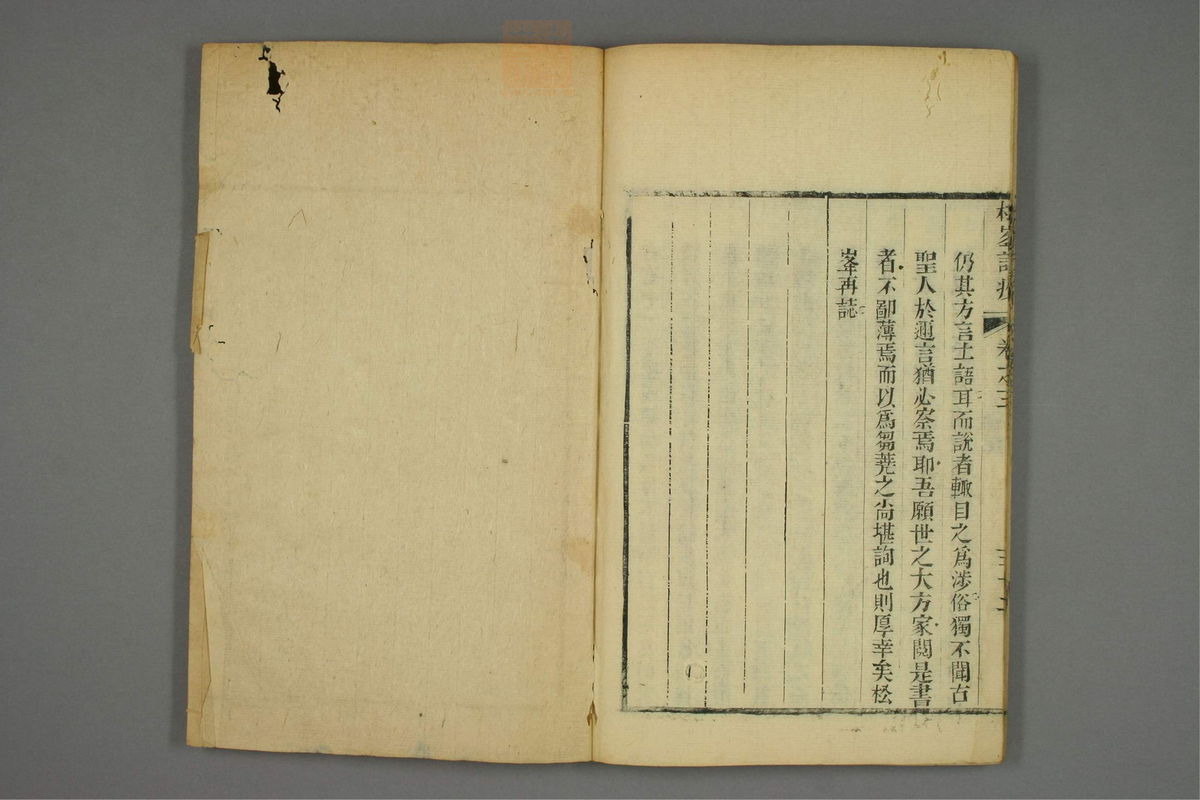 松峯說疫
卷之三
三十六
仍其方言土語耳而說者輙目之為涉俗獨不聞古
聖人於邇言猶必察焉耶吾願世之大方家閱是書
者不鄙薄焉而以為芻蕘之尚堪詢也則厚幸矣松
峯再誌